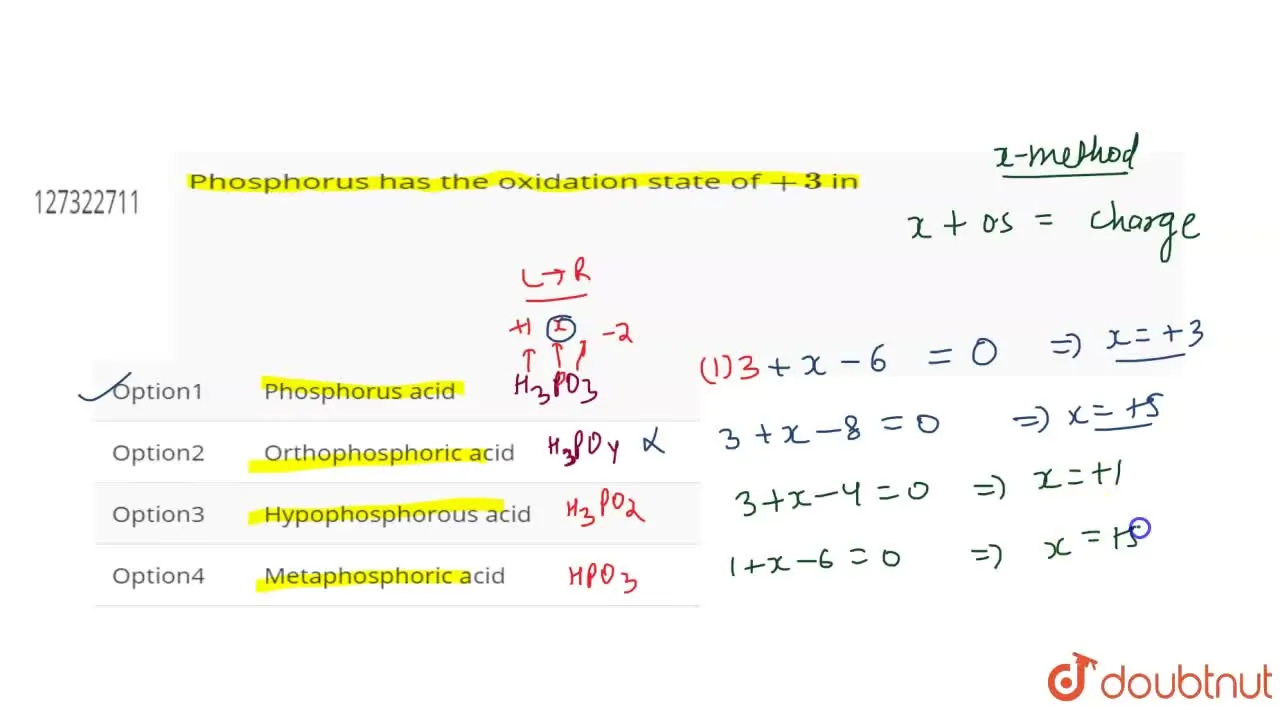 x-method
Phosphorus has the oxidation state of +3 in
127322711
x + os = charge
L → R
+1 x -2
(1) 3 + x - 6 = 0 ⇒ x = +3
Option1 Phosphorus acid H3PO3
3 + x - 8 = 0 ⇒ x = +5
Option2 Orthophosphoric acid H3PO4
3 + x - 4 = 0 ⇒ x = +1
Option3 Hypophosphorous acid H3PO2
1 + x - 6 = 0 ⇒ x = +5
Option4 Metaphosphoric acid HPO3
doubtnut